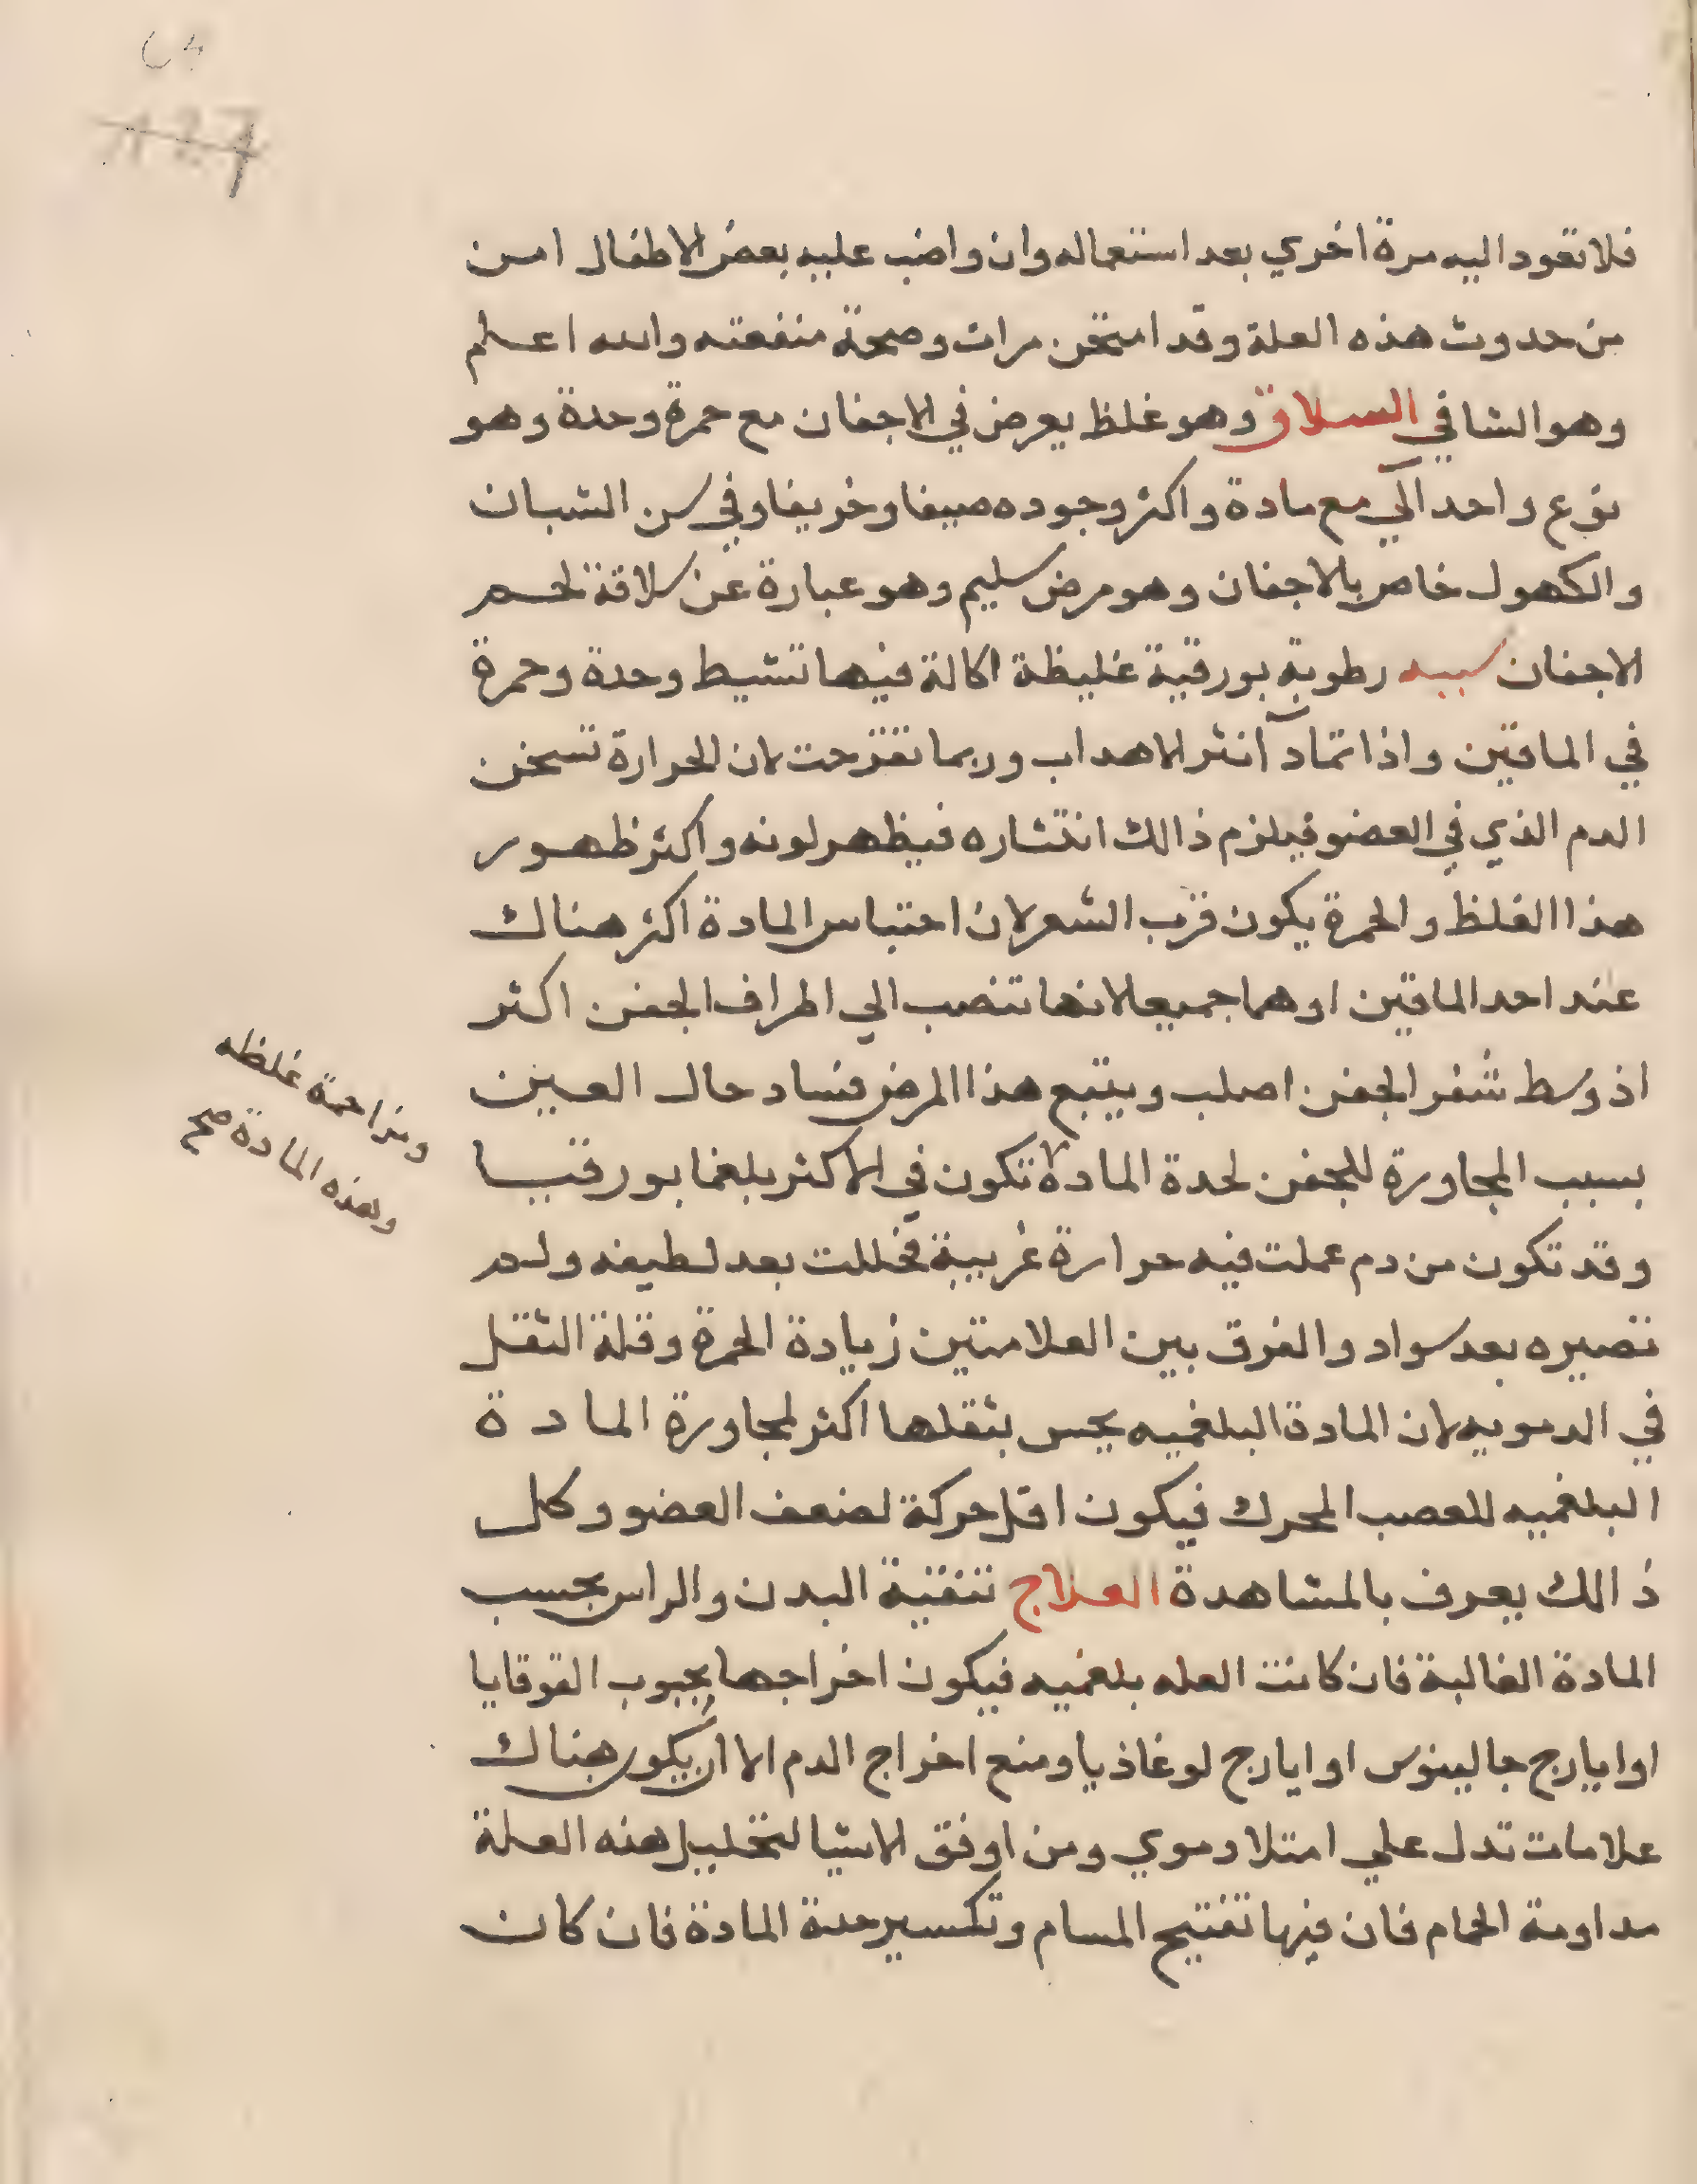 فلا تعود اليه مرة اخري بعد استعماله وان واضب عليه بعض الاطفال امن
من حدوث هذه العلة وقد امتحن مرات وصحة منفعته والله اعلم
وهو الشافي السلاق وهو غلظ يعرض في الاجفان مع حمرة وحدة وهو
نوع واحد آلي مع مادة واكثر وجوده صيفا وخريفا وفي سن الشبان
والكهول خاص بالاجفان وهو مرض سليم وهو عبارة عن سلاقة لحم
الاجفان سببه رطوبة بورقية غليظة اكالة فيها تشيط وحدة وحمرة
في الماقين واذا تمادآ انثر الاهداب وربما تقرحت لان الحرارة تسخن
الدم الذي في العضو فيلزم ذالك انتشاره فيظهر لونه واكثر ظهور
هذا الغلظ والحمرة يكون قرب الشعر لان احتباس المادة اكثر هناك
عند احد الماقين اوهما جميعا لانها تنصب الي اطراف الجفن اكثر
اذ وسط شفر الجفن اصلب ويتبع هذا المرض فساد حال العين
بسبب المجاورة للجفن لحدة المادة تكون في الاكثر بلغما بورقيا
ومزاحمة غلظه
وهذه المادة صح
وقد تكون من دم عملت فيه حرارة غريبة فحللت بعد لطيفه ولم
تصيره بعد سواد والفرق بين العلامتين زيادة الحمرة وقلة الثقل
في الدمويه لان المادة البلغميه يحس بثقلها اكثر لمجاورة المادة
البلغميه للعصب المحرك فيكون اقل حركة لضعف العضو وكل
ذالك يعرف بالمشاهدة العلاج تنقية البدن والراس بحسب
المادة الغالبة فان كانت العله بلغميه فيكون اخراجها بحبوب القوقايا
او ايارج جالينوس او ايارج لوغاذيا ومنع اخراج الدم الا ان يكون هناك
علامات تدل علي امتلا دموي ومن اوفق الاشيا لتحليل هذه العلة
مداومة الحمام فان فيها تفتيح المسام وتكسير حدة المادة فان كان